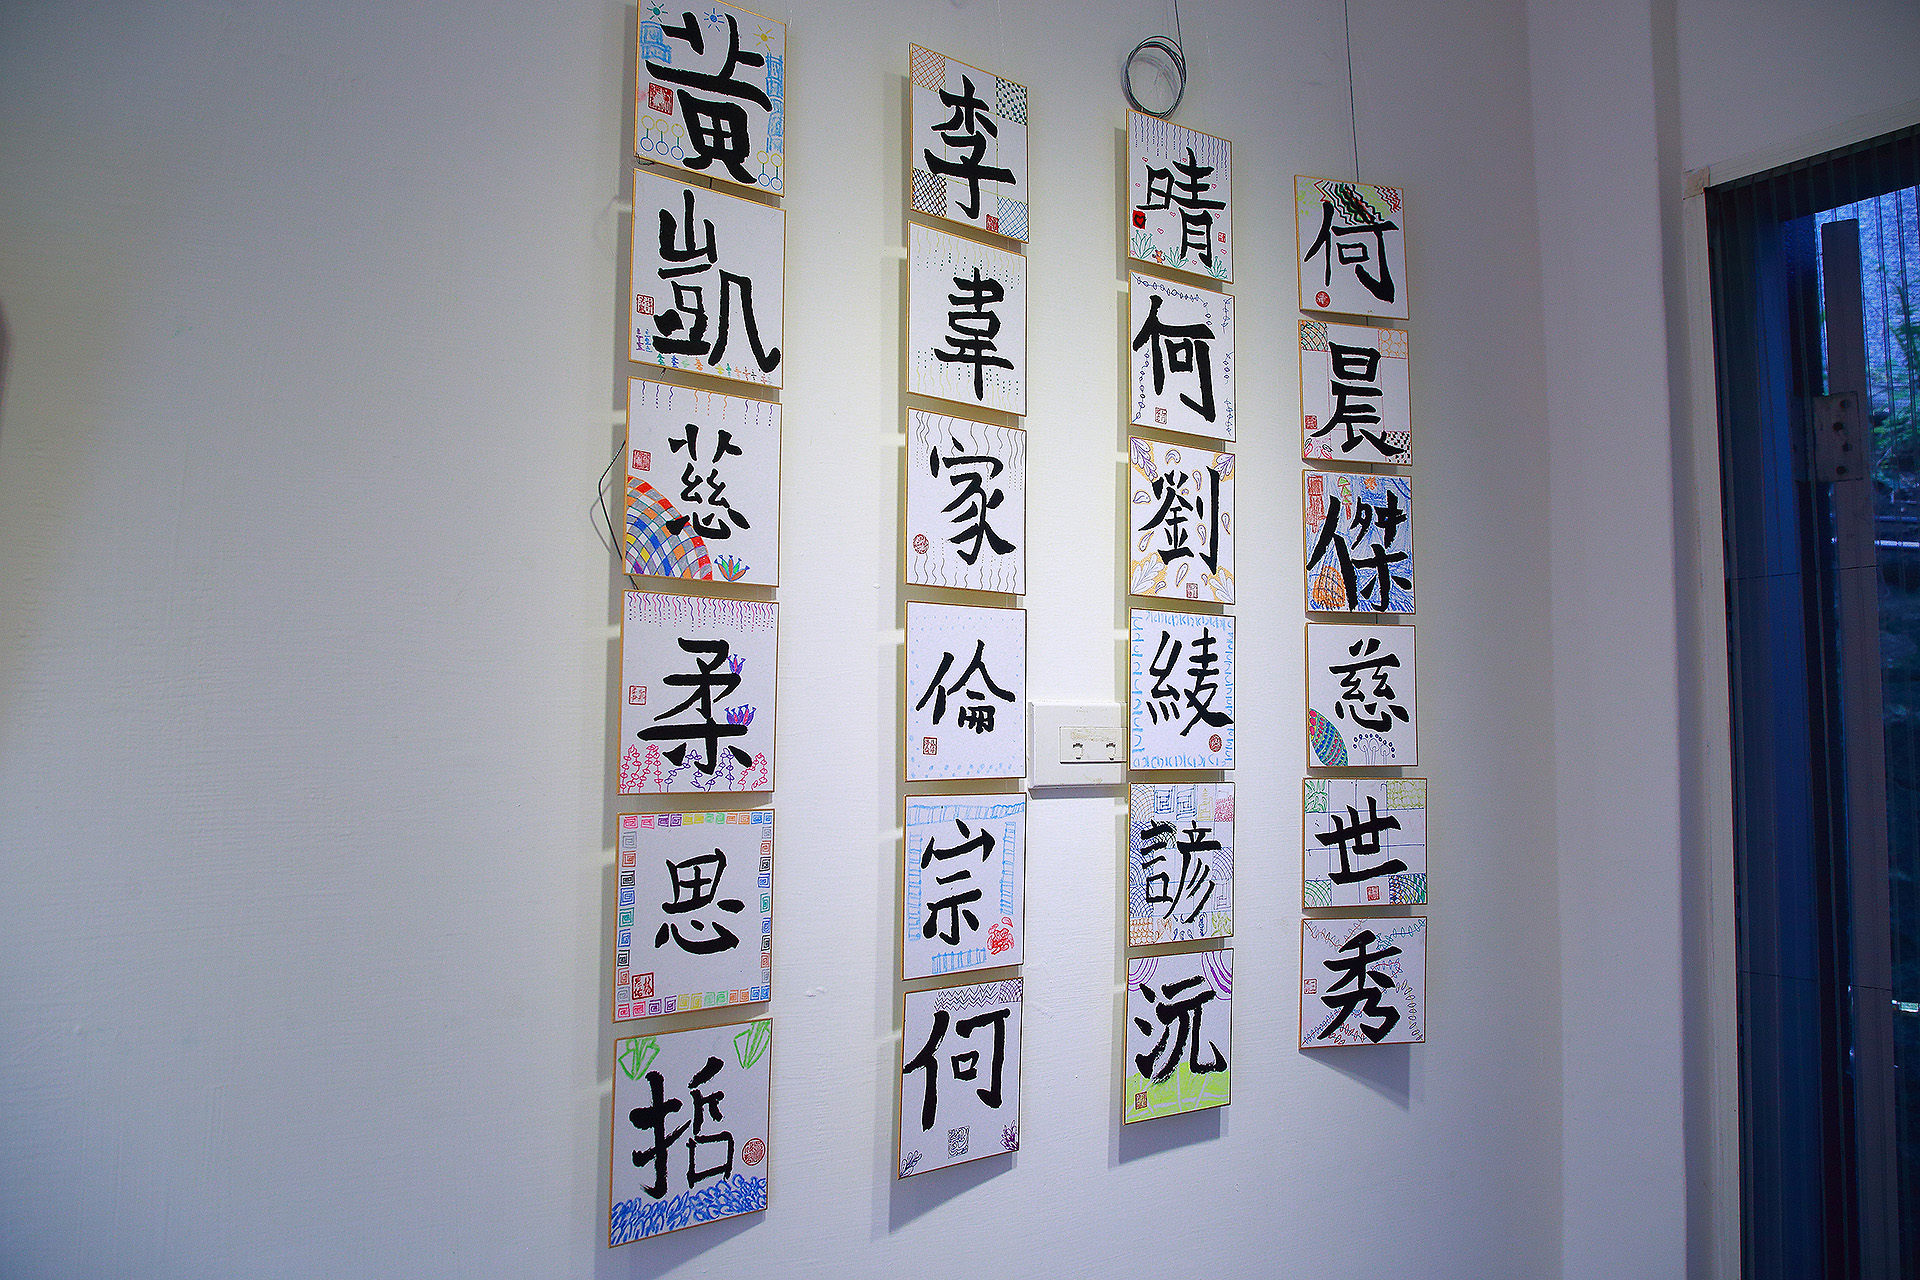 何晨傑慈世秀
晴何劉綾諺沅
李韋家倫宗何
黃凱慈柔思哲